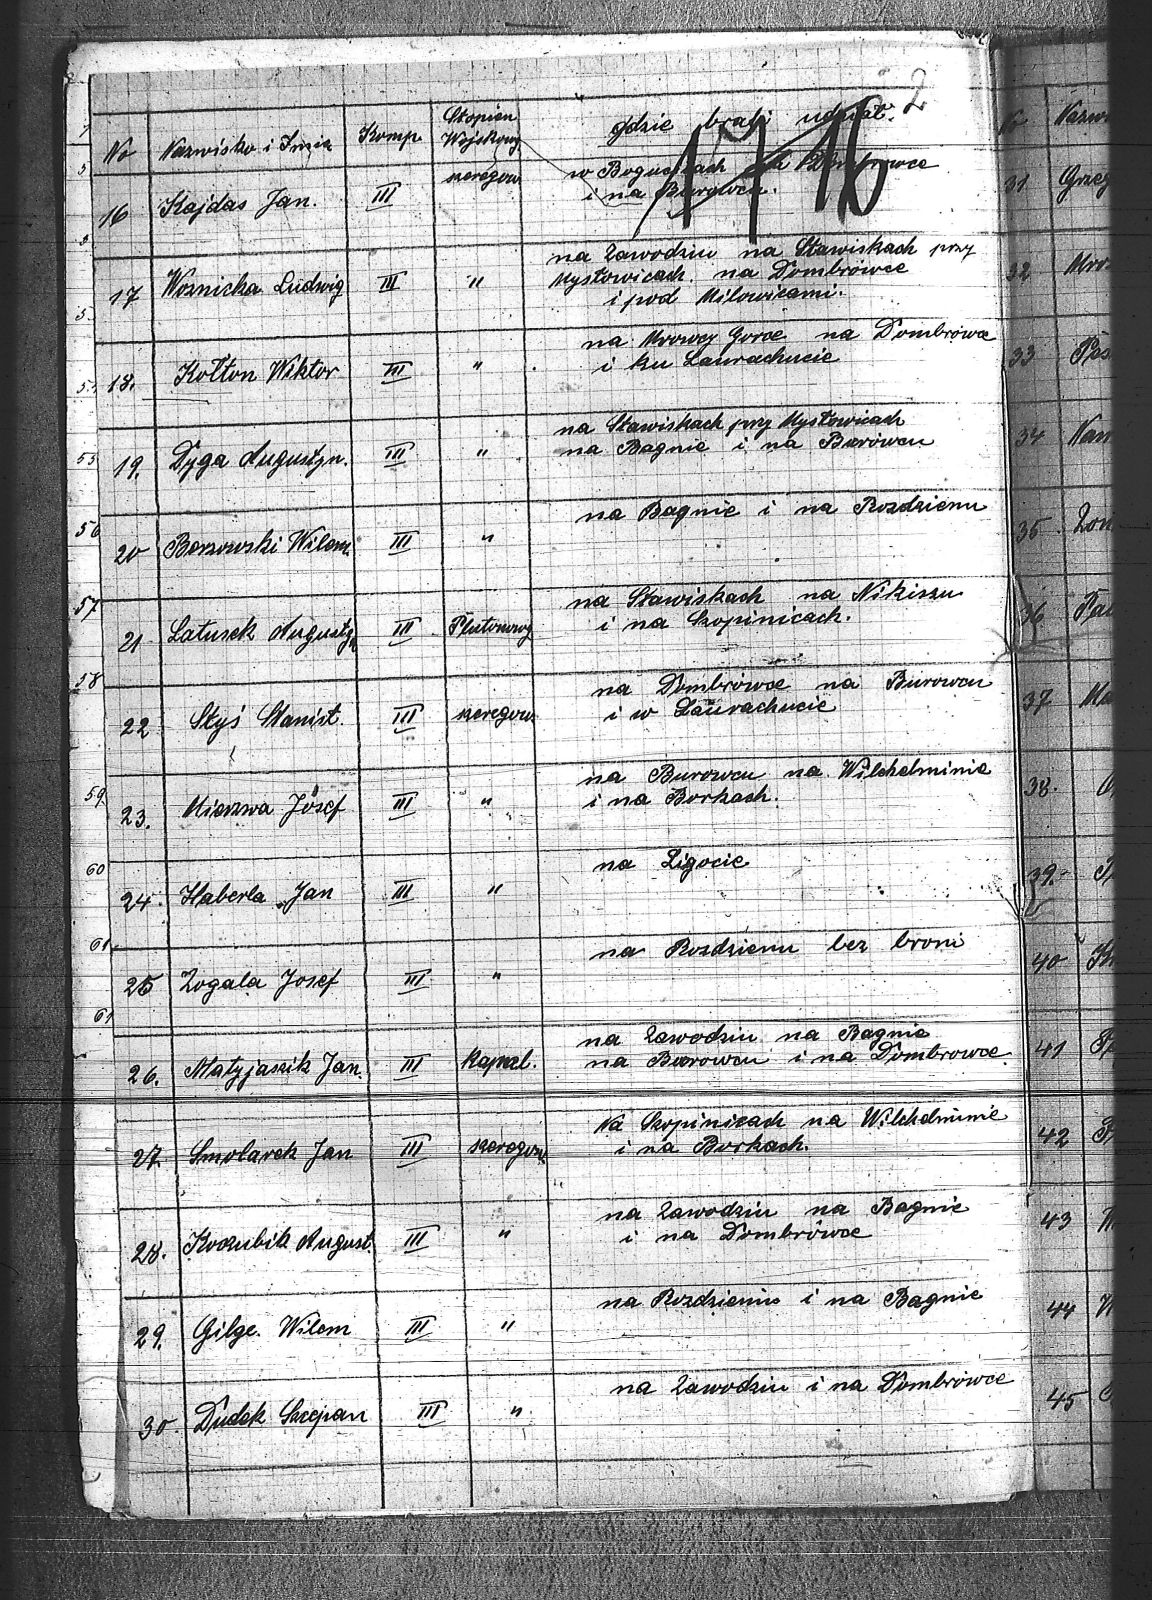 2
17 16
No Nazwisko i Imię Komp Stopien Wojskowy gdzie brali udział.
16 Kajdas Jan. III szeregow w Bogucicach na Dombrowce
i na Burowcu.
17 Woznicka Ludwig III " na Zawodziu na Stawiskach przy
Mysłowicach. na Dombrówce
i pod Milowicami.
18. Kołton Wiktor III " na Mrowcy Gorce na Dombrówce
i ku Laurachucie
19. Dyga Augustyn. III " na Stawiskach przy Mysłowicach
na Bagnie i na Borowcu
20 Borzowski Wilem. III " na Bagnie i na Rozdzieniu
21 Latusek Augustyn III Plutonowy na Stawiskach na Nikiszu
i na Szopinicach.
22 Styś Stanisł. III szeregow na Dombrówce na Burowcu
i w Laurachucie
23. Mierzwa Jósef III " na Burowcu na Wilchelminie
i na Borkach.
24. Haberla Jan III " na Ligocie
25 Zogala Josef III " na Rozdzieniu bez broni
26. Matyjaszik Jan. III Kapral. na Zawodziu na Bagnie
na Borowcu i na Dombrowce
27. Smolarek Jan III szeregow na Szopinicach na Wilchelminie
i na Borkach.
28. Koczubik August. III " na Zawodziu na Bagnie
i na Dombrówce
29. Gilge. Wilem III " na Rozdzieniu i na Bagnie
30. Dudek Szczepan III " na Zawodziu i na Dombrówce
56
57
58
59
60
61
61
No
31
32
33
34
35
36
37
38.
39.
40
41
42
43
44
45